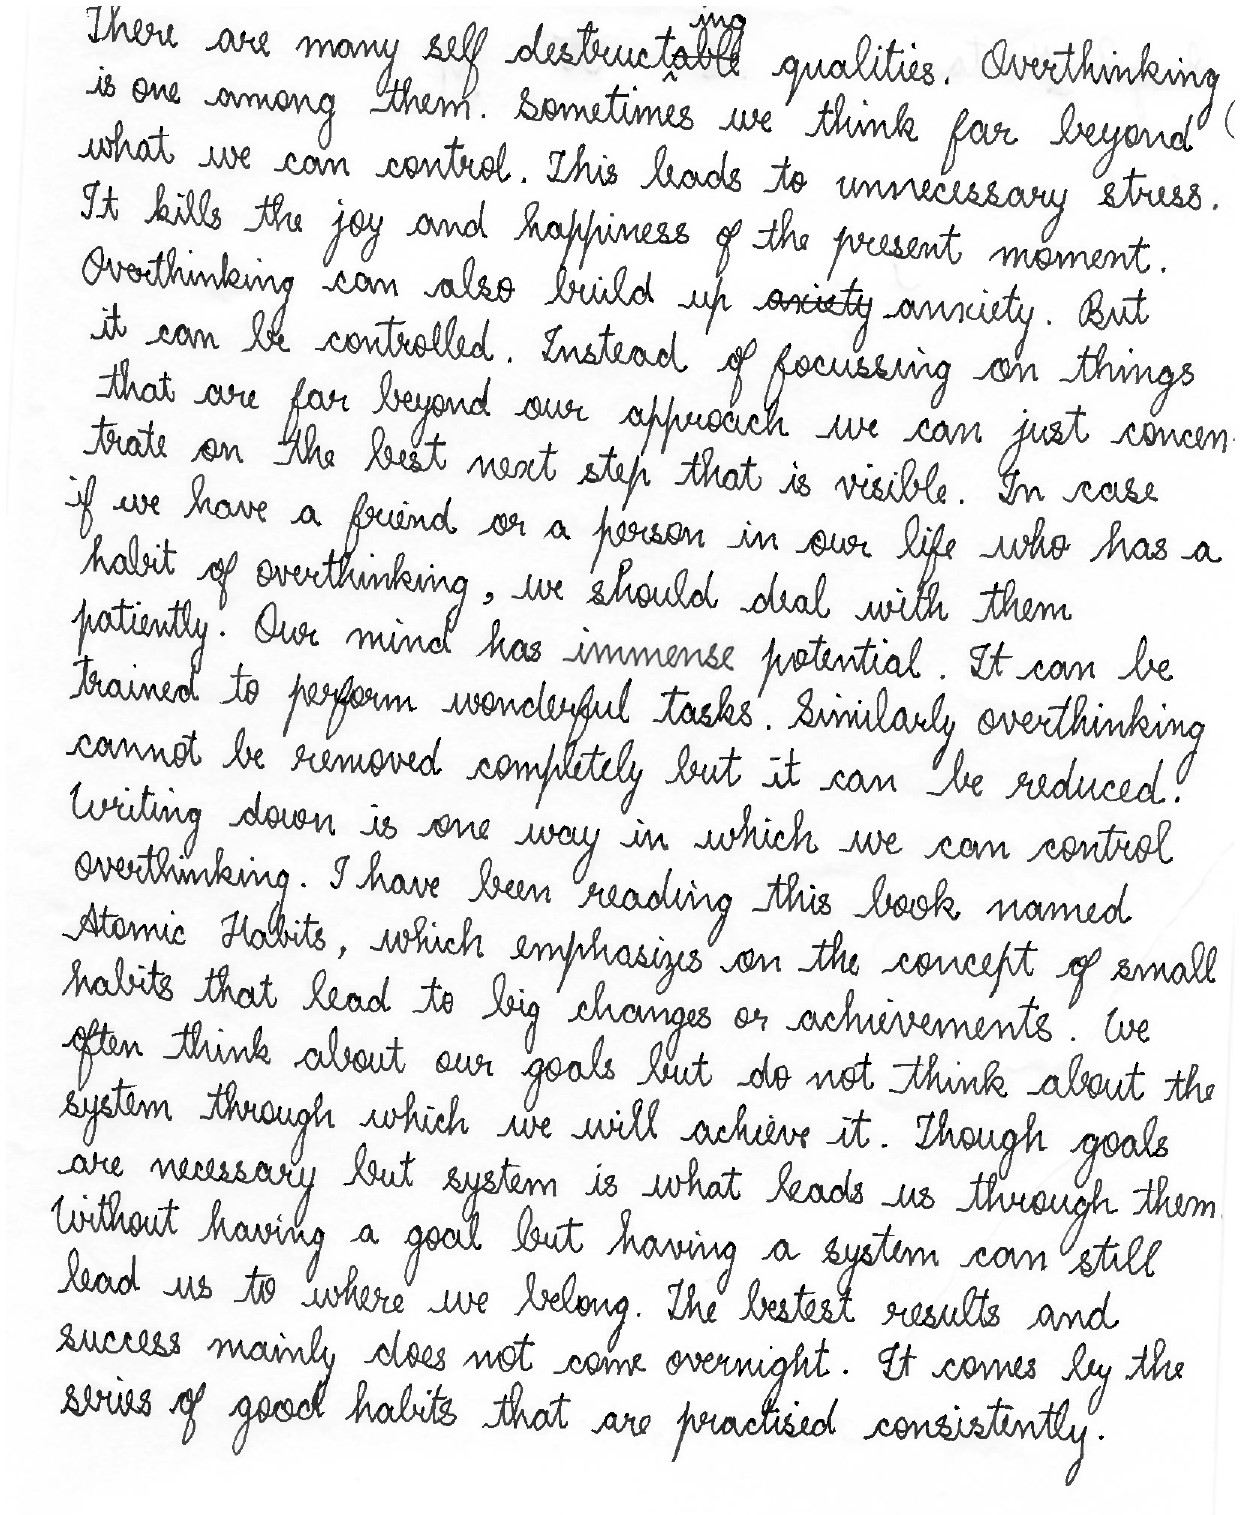 There are many self destructing qualities. Overthinking
is one among them. Sometimes we think far beyond
what we can control. This leads to unnecessary stress.
It kills the joy and happiness of the present moment.
Overthinking can also build up axiety anxiety. But
it can be controlled. Instead of focussing on things
that are far beyond our approach we can just concen-
trate on the best next step that is visible. In case
if we have a friend or a person in our life who has a
habit of overthinking, we should deal with them
patiently. Our mind has immense potential. It can be
trained to perform wonderful tasks. Similarly overthinking
cannot be removed completely but it can be reduced.
Writing down is one way in which we can control
overthinking. I have been reading this book named
Atomic Habits, which emphasizes on the concept of small
habits that lead to big changes or achievements. We
often think about our goals but do not think about the
system through which we will achieve it. Though goals
are necessary but system is what leads us through them.
Without having a goal but having a system can still
lead us to where we belong. The bestest results and
success mainly does not come overnight. It comes by the
series of good habits that are practised consistently.